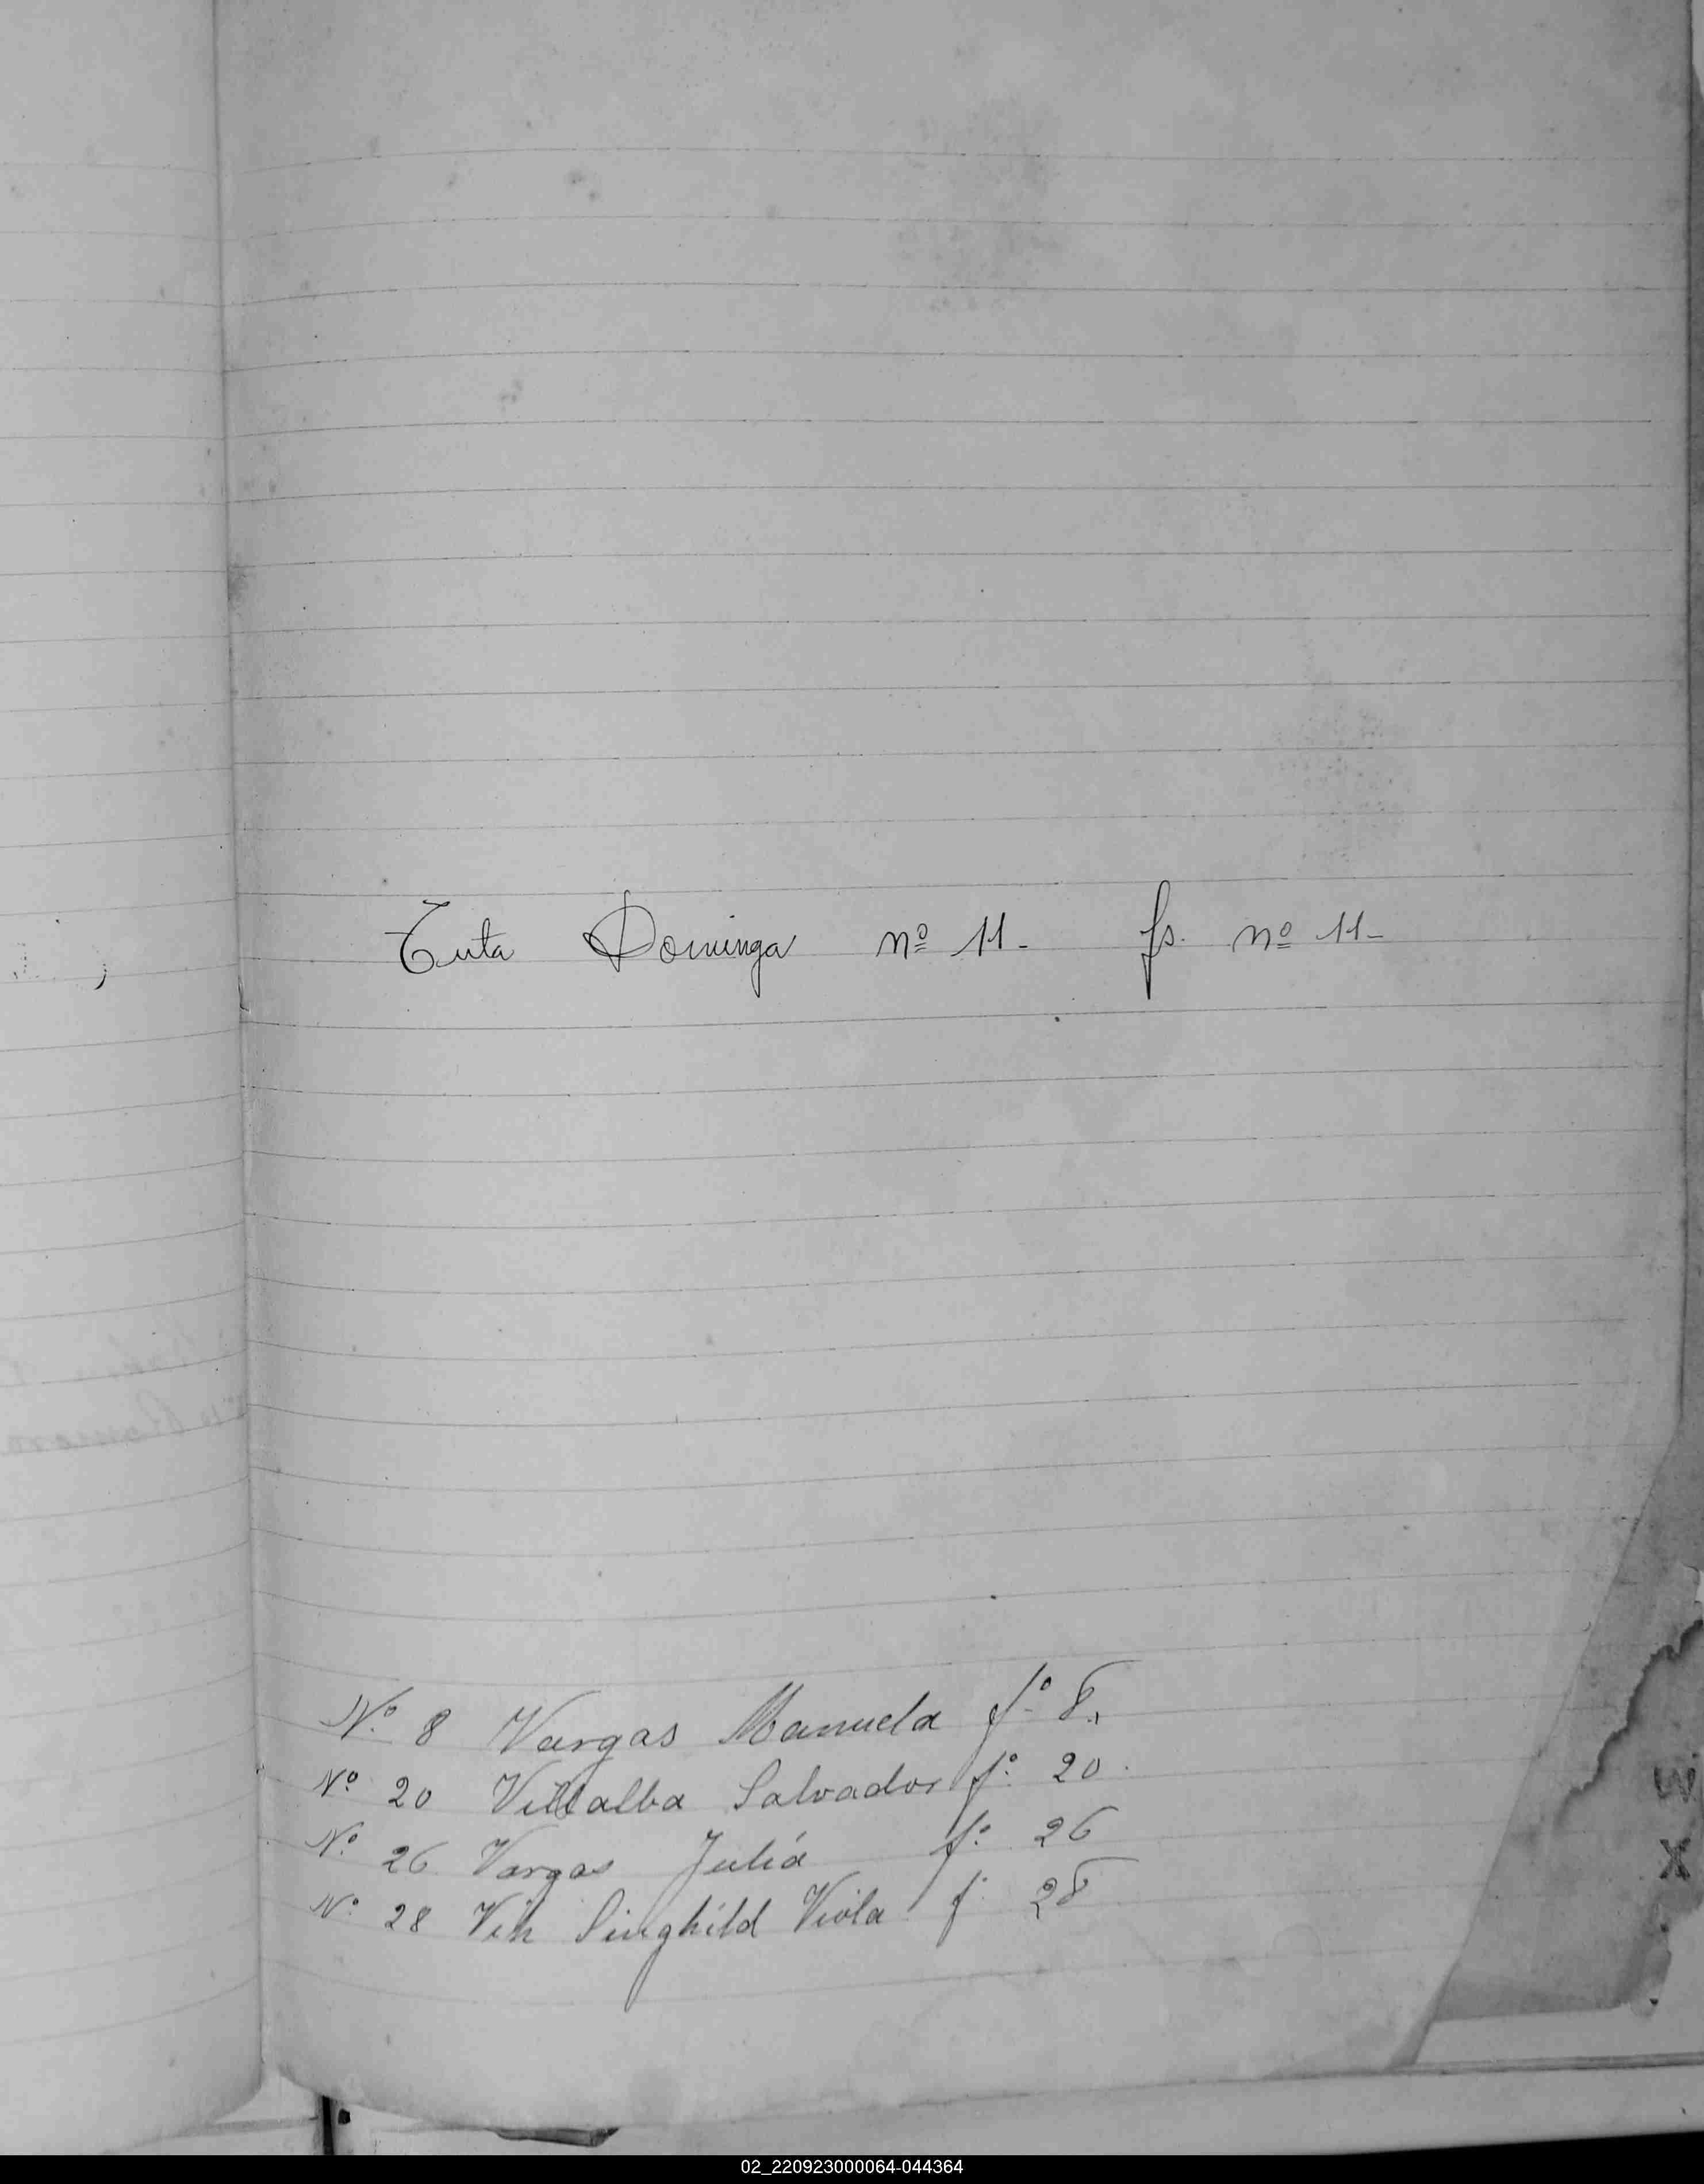 Tuta Dominga nº 11- fs. nº 11-
Nº 8 Vargas Manuela fº 8.
Nº 20 Villalba Salvador fº 20.
Nº 26 Vargas Juliá fº 26
Nº 28 Vik Singhild Viola fº 28
02_220923000064-044364